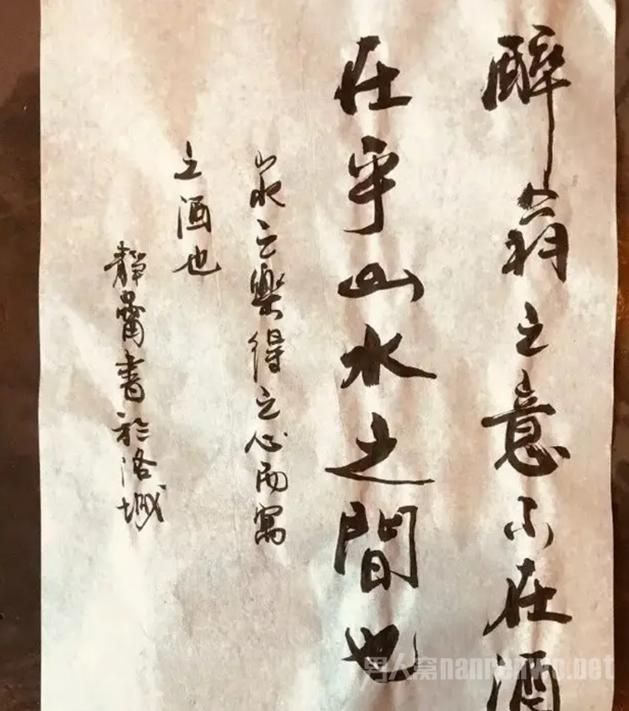 醉翁之意不在酒
在乎山水之間也
山水之樂得之心而寓
之酒也
靜書於洛城
男人窝nanrenwo.net